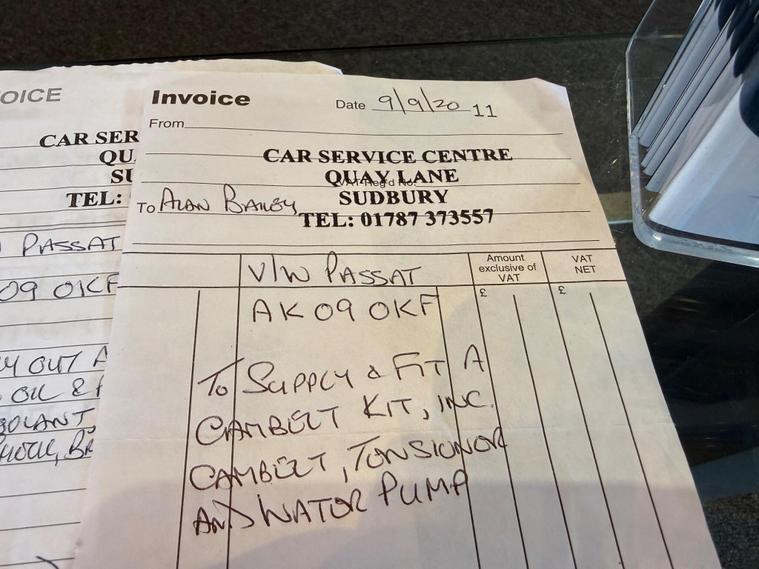 OICE
CAR SER
QU
SU
TEL:
PASSAT
09 OKF
Y OUT A
OIL &
Invoice
Date 9/9/20 11
From
CAR SERVICE CENTRE
QUAY LANE
SUDBURY
TO ALAN BAILEY
TEL: 01787 373557
V/W PASSAT
Amount exclusive of VAT
VAT NET
£
£
AK09 OKF
TO SUPPLY & FIT A
CAMBELT KIT, INC.
CAMBELT, TONSIONOR
AND WATOR PUMP